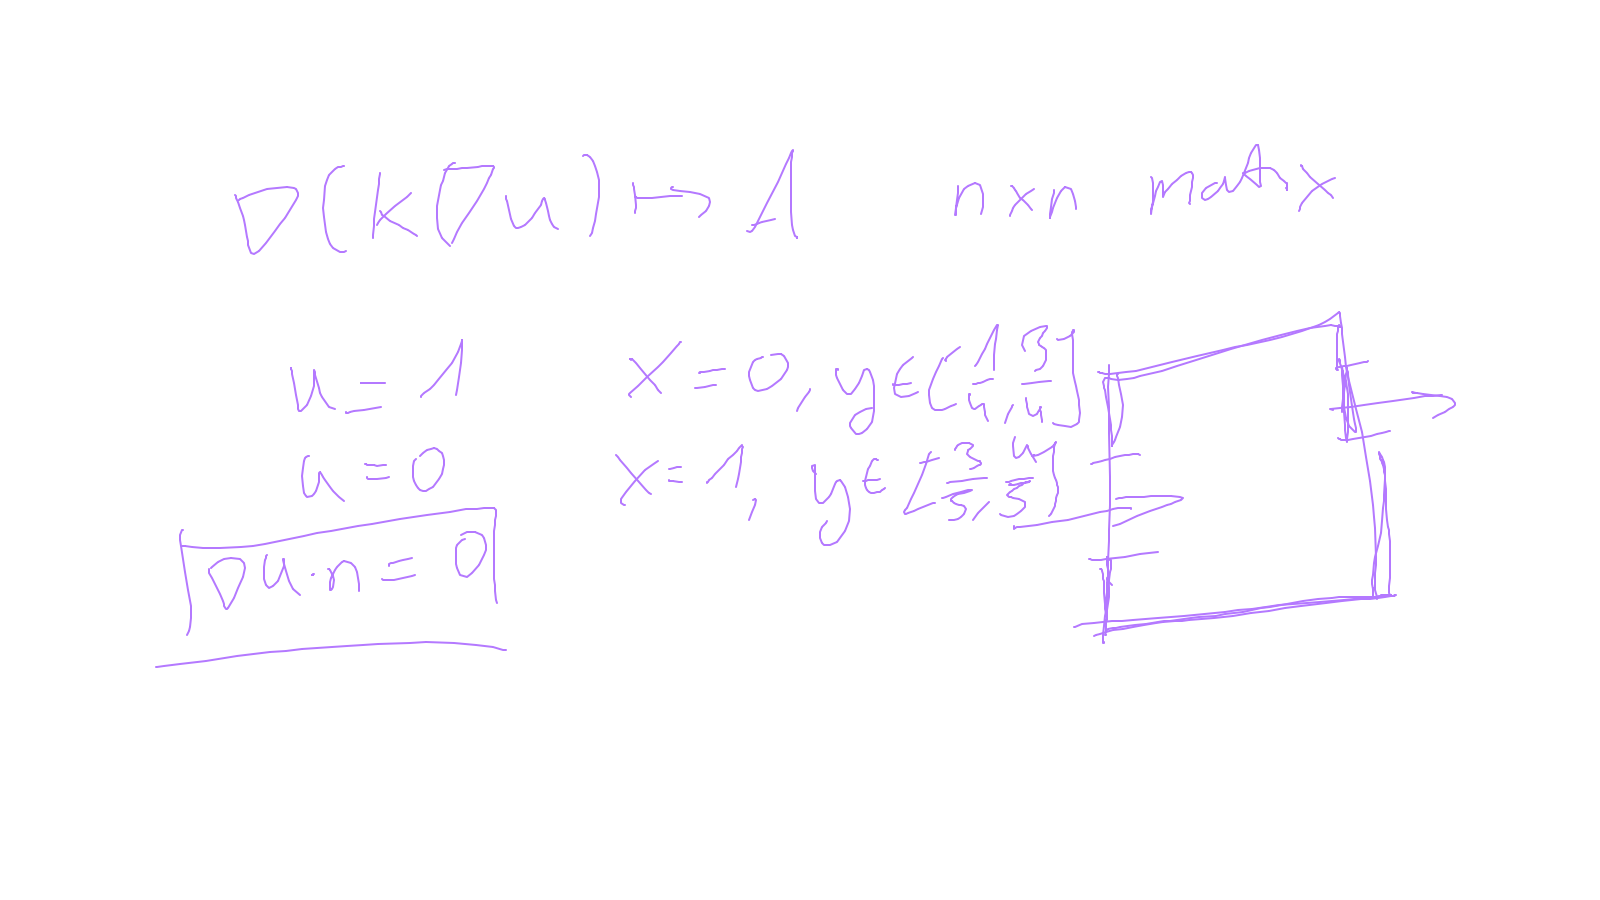 ∇(k∇u) ↦ A n×n matrix
u = 1 x = 0, y ∈ [1/4, 3/4]
u = 0 x = 1, y ∈ [3/5, 4/5]
∇u·n = 0